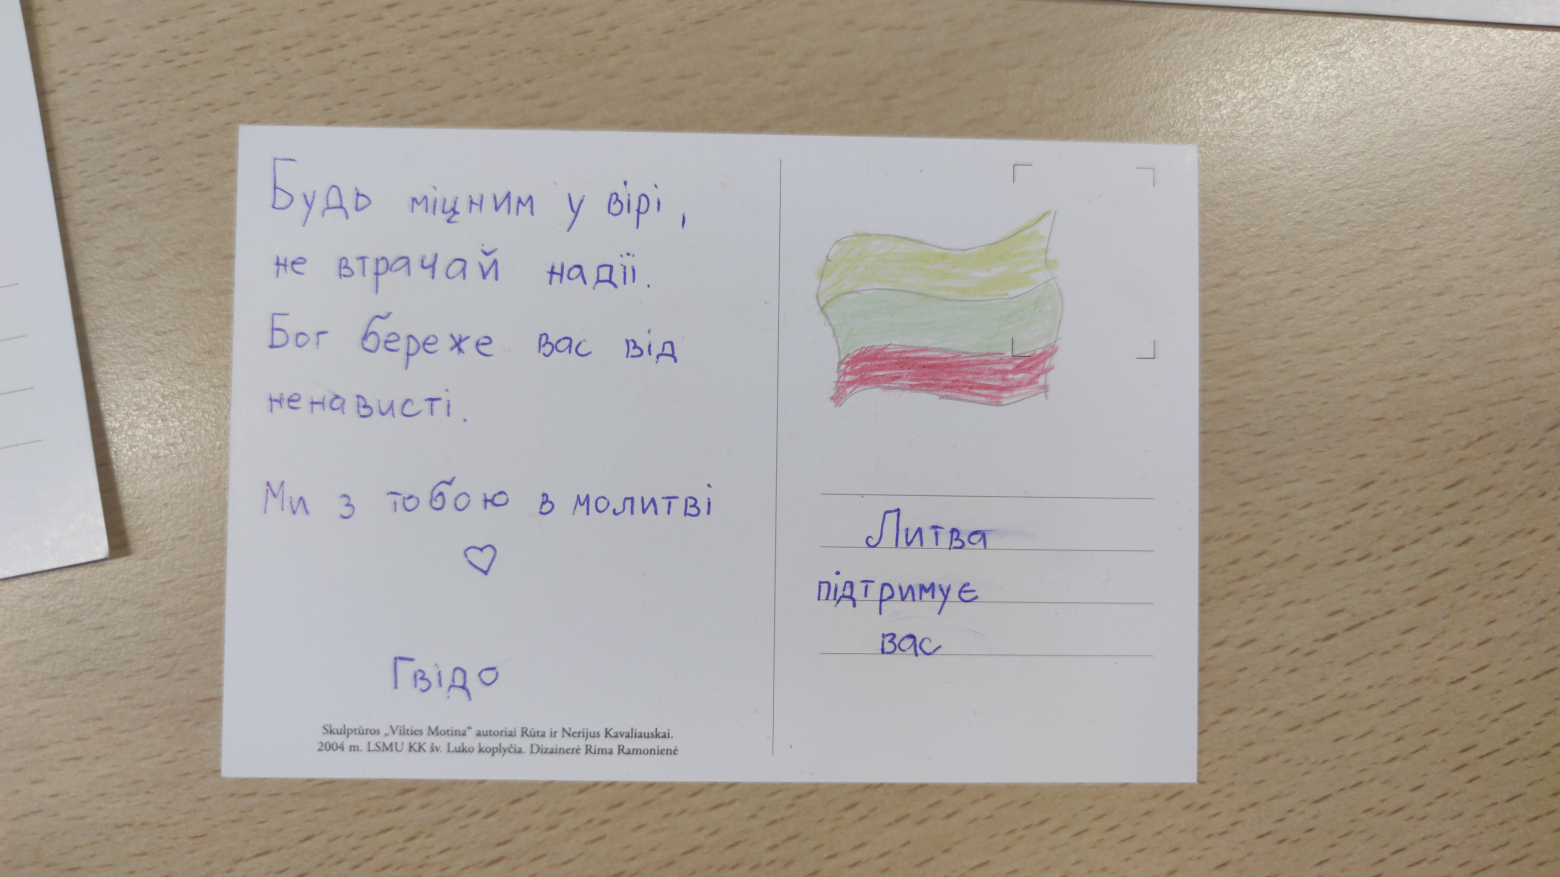 Будь міцним у вірі,
не втрачай надії.
Бог береже вас від
ненависті.
Ми з тобою в молитві
Гвідо
Skulptūros „Vilties Motina“ autoriai Rūta ir Nerijus Kavaliauskai.
2004 m. LSMU KK šv. Luko koplyčia. Dizainerė Rima Ramonienė
Литва
підтримує
вас